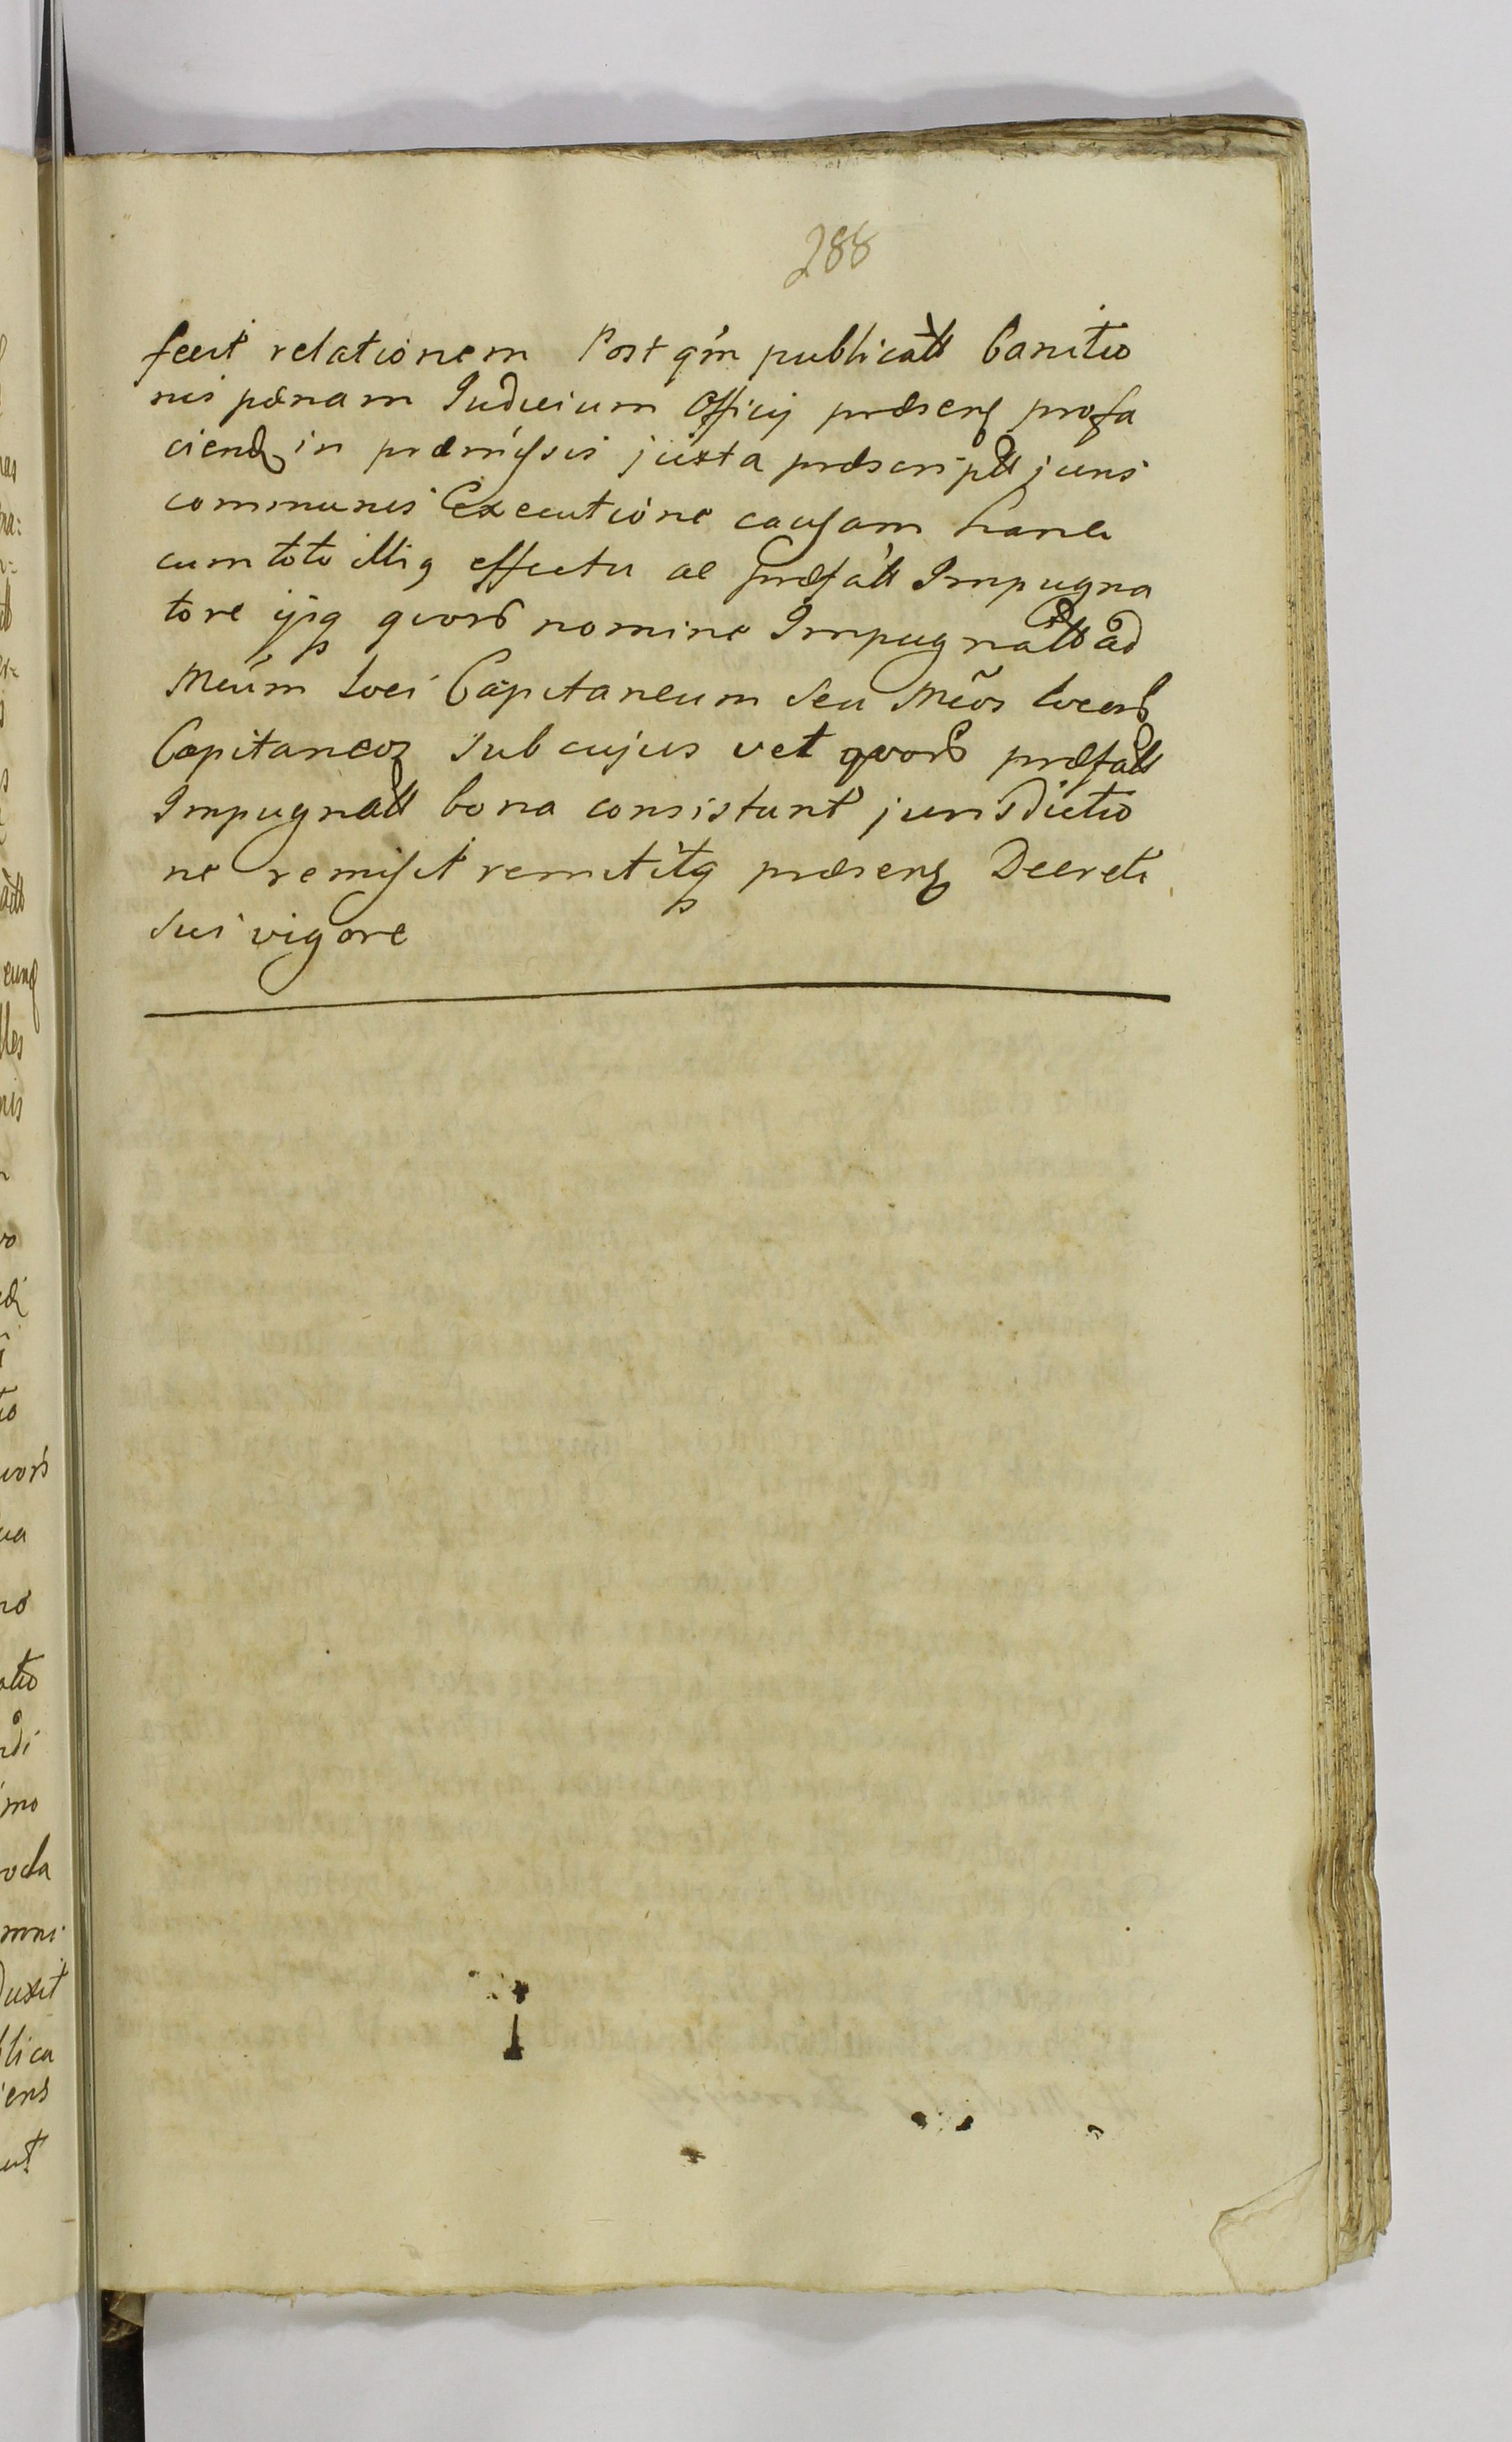 288
fecit relationem Post qm publicatt Banitio
nis pœnam Judicium Officij præsens profa
ciend in præmissis juxta præscriptt juris
communis Executione causam hanc
cum toto illig effectu ac præfatt Impugna
tore ijsq quors nomine Impugnatt ad
Mcum Loci Capitaneum seu Mcos locors
Capitaneos sub cujus vel quors præfatt
Impugnatt bona consistunt jurisdictio
ne remisit remititq præsens Decreti
sui vigore